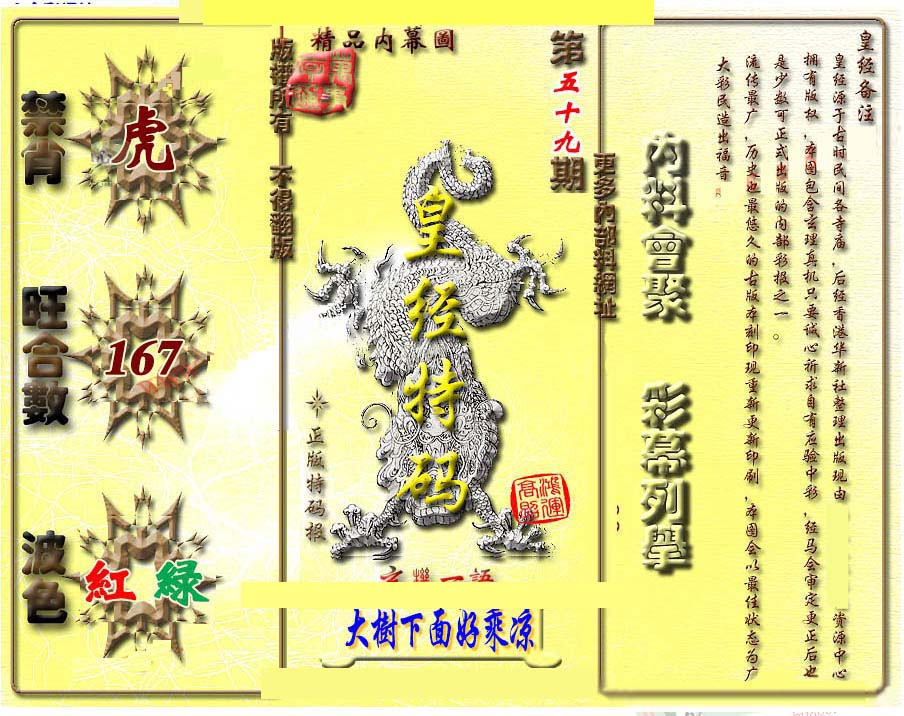 皇经备注
皇经源于古时民间各寺庙，后经香港华新社整理出版现由
資源中心
拥有版权，本图包含玄理真机只要诚心祈求自有应验中彩，经马会审定更正后也
是少数可正式出版的内部彩报之一。
流传最广，历史也最悠久的古版本刻印现重新更新印刷，本图会以最佳状态为广
大彩民造出福音
內料會聚
彩幕列舉
更多內部料網址
第五十九期
精品内幕圖
皇经特码
正版特码报
鴻運
高照
大樹下面好乘凉
版權所有 不得翻版
禁肖
虎
旺合數
167
波色
紅 綠